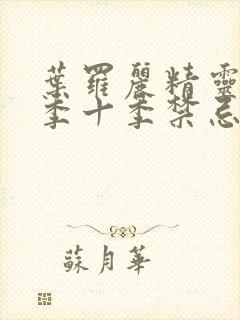 葉羅麗精靈
季十季禁忌
蘇月華